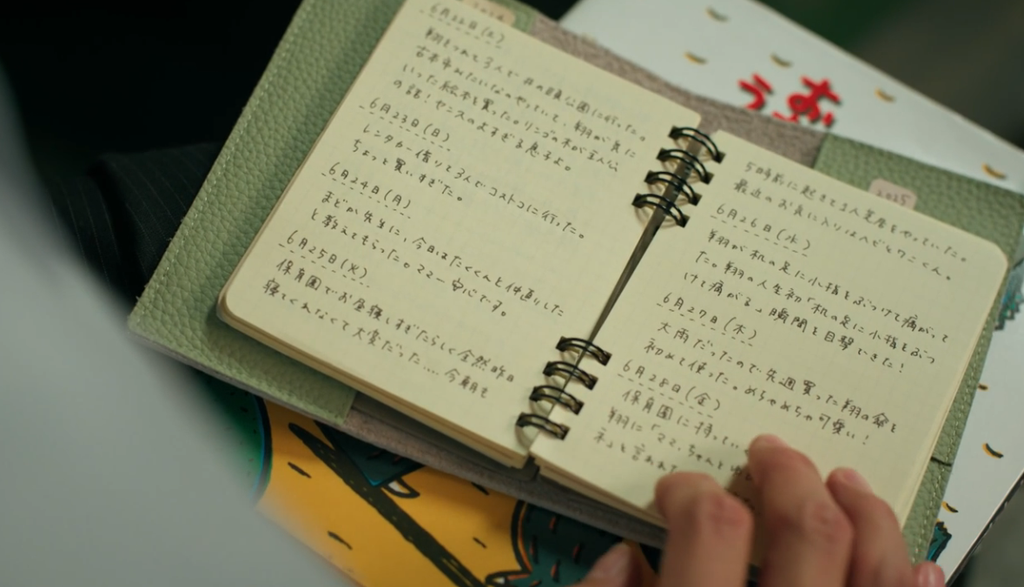 6月22日(土)
翔をつれて3人で井の頭公園に行った。
古本市みたいなのやっていて、翔が気に
いった絵本を買った。リンゴの木が主人公
の話!センスのよすぎる息子よ。
6月23日(日)
レンタカー借りて3人でコストコに行った。
ちょっと買いすぎた。
6月24日(月)
まどか先生に、今日はたくくんと仲直りした
と教えてもらった。ママ一安心です。
6月25日(火)
保育園でお昼寝しすぎたらしく全然昨日
寝てくれなくて大変だった…。今朝も
2025
5時前に起きて1人
をやっていた。
最近のお気に入りはヘビとワニくん。
6月26日(水)
翔が机の足に小指をぶつけて痛がって
た。翔の人生初「机の足に小指をぶつ
けて痛がる」瞬間を目撃できた!
6月27日(木)
大雨だったので先週買った翔の傘を
初めて使った。めちゃめちゃ可愛い!
6月28日(金)
保育園に持ってい
翔に「ママ、ちゃんと
ネ」と言われ